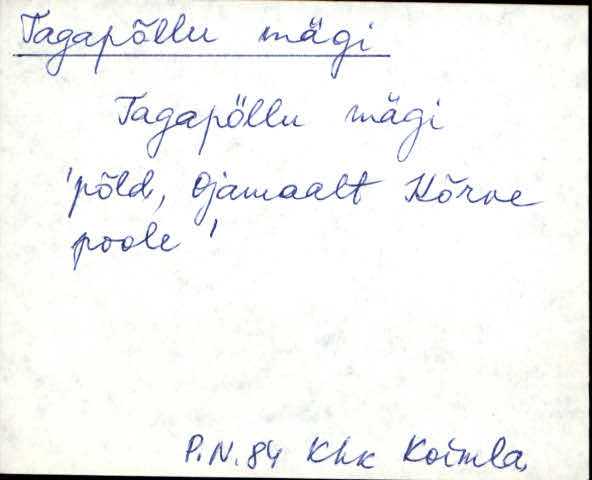 Tagapõllu mägi
Tagapöllu mägi
'põld, Ojamaalt Kõrve
poole'
P.N.84 Khk Koimla